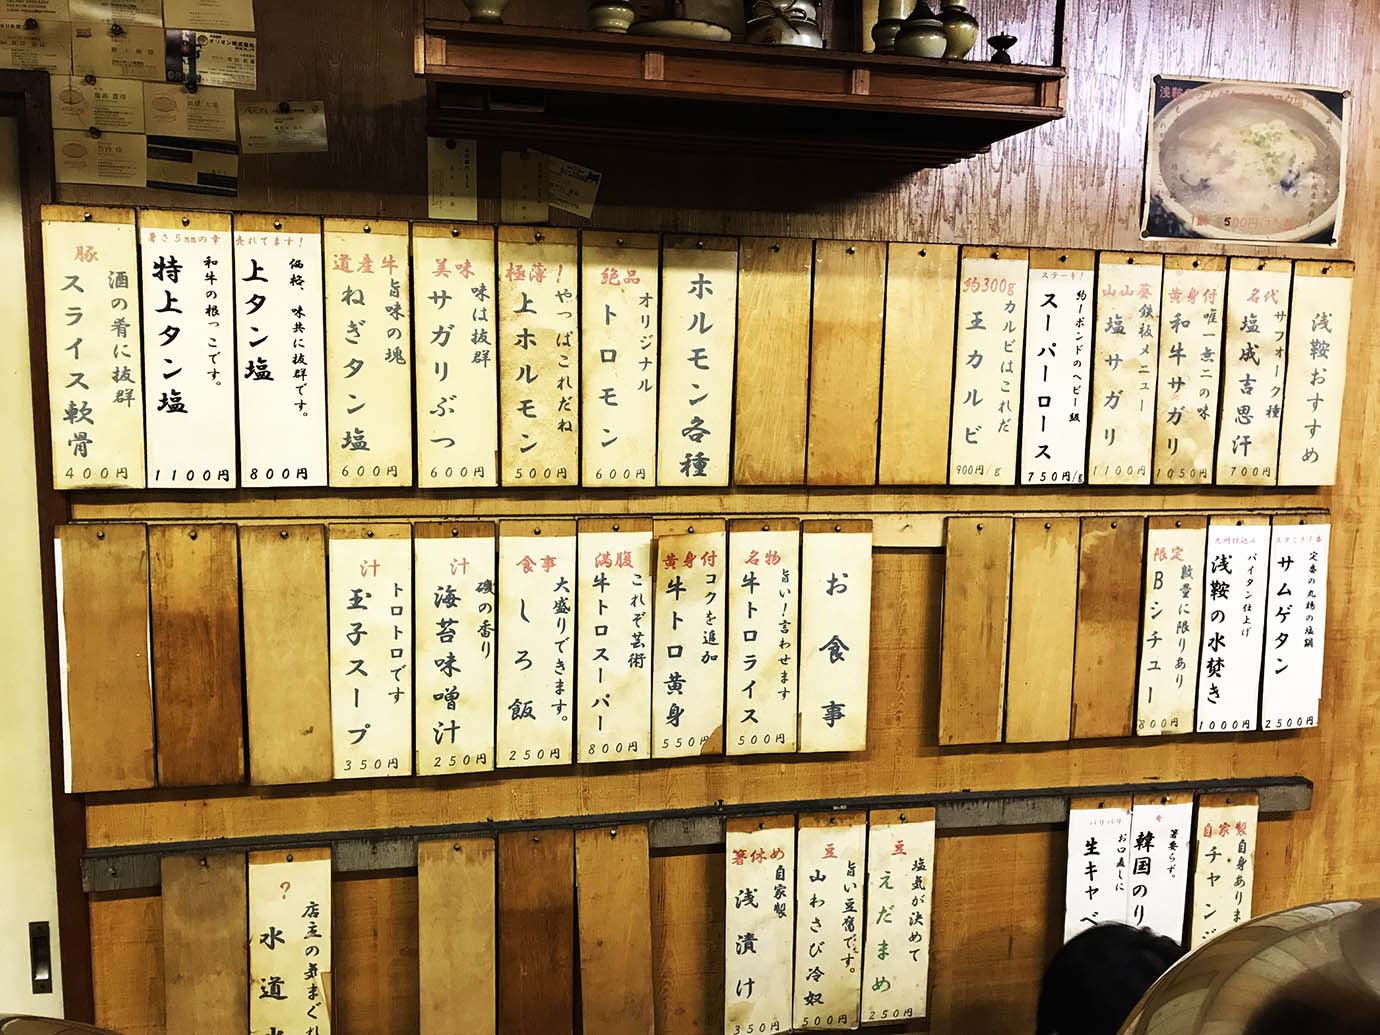 浅鞍おすすめ
名代
サフォーク種
塩成吉思汗
700円
黄身付
唯一無二の味
和牛サガリ
1050円
山山葵
鉄板メニュー
塩サガリ
1100円
ステーキ!
約一ポンドのヘビー級
スーパーロース
750円/g
約300g
カルビはこれだ
王カルビ
900円/g
ホルモン各種
絶品
オリジナル
トロモン
600円
極薄!
やっぱこれだね
上ホルモン
500円
美味
味は抜群
サガリぶつ
600円
道産牛
旨味の塊
ねぎタン塩
600円
売れてます!
価格、味共に抜群です。
上タン塩
800円
和牛の根っこです。
特上タン塩
1100円
豚
酒の肴に抜群
スライス軟骨
400円
スタミナ1番
定番の丸鶏の塩鍋
サムゲタン
2500円
九州仕込み
パイタン仕上げ
浅鞍の水焚き
1000円
限定
数量に限りあり
Bシチュー
800円
お食事
名物
旨い!言わせます
牛トロライス
500円
黄身付
コクを追加
牛トロ黄身
550円
満腹
これぞ芸術
牛トロスーパー
800円
食事
大盛りできます。
しろ飯
250円
汁
磯の香り
海苔味噌汁
250円
汁
トロトロです
玉子スープ
350円
自家製
自身ありま
チャンジ
箸要らず。
韓国のり
パリパリ
お口直しに
生キャベ
豆
塩気が決めて
えだまめ
250円
豆
旨い豆腐です。
山わさび冷奴
500円
箸休め
自家製
浅漬け
350円
?
店主の気まぐれ
水道水